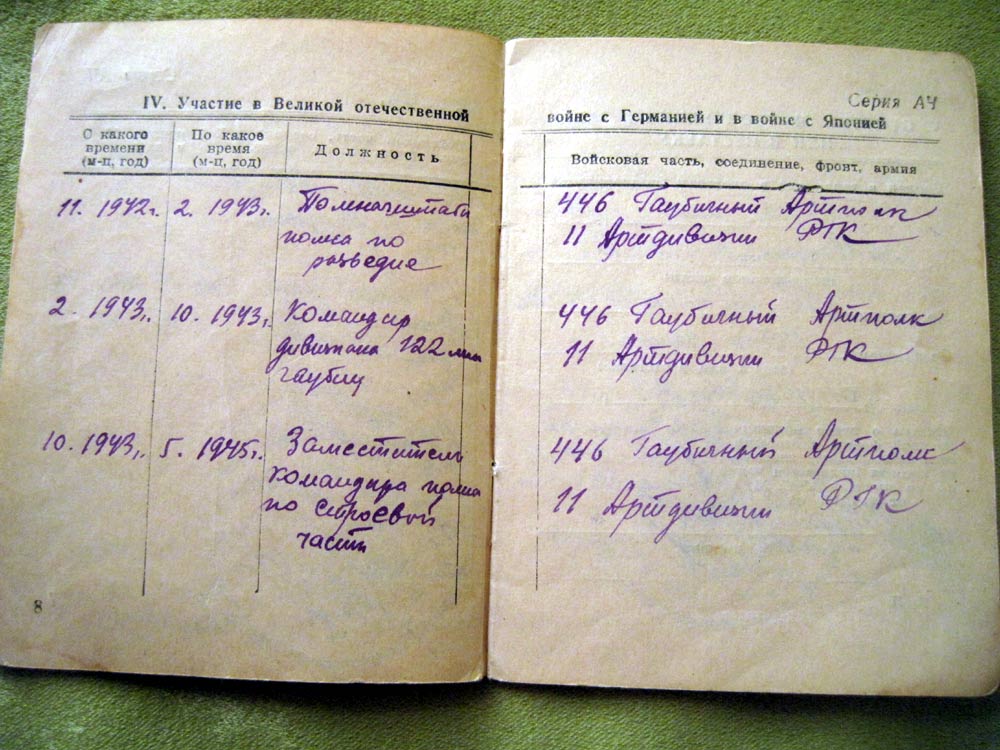 IV. Участие в Великой отечественной
С какого времени (м-ц, год)
По какое время (м-ц, год)
Должность
11. 1942г. 2. 1943г. Помначштаба
полка по
разведке
2. 1943г. 10. 1943г. Командир
дивизиона 122 мм
гаубиц
10. 1943г. 5. 1945г. Заместитель
командира полка
по строевой
части
8
Серия АЧ
войне с Германией и в войне с Японией
Войсковая часть, соединение, фронт, армия
446 Гаубичный Артполк
11 Артдивизии РГК
446 Гаубичный Артполк
11 Артдивизии РГК
446 Гаубичный Артполк
11 Артдивизии РГК